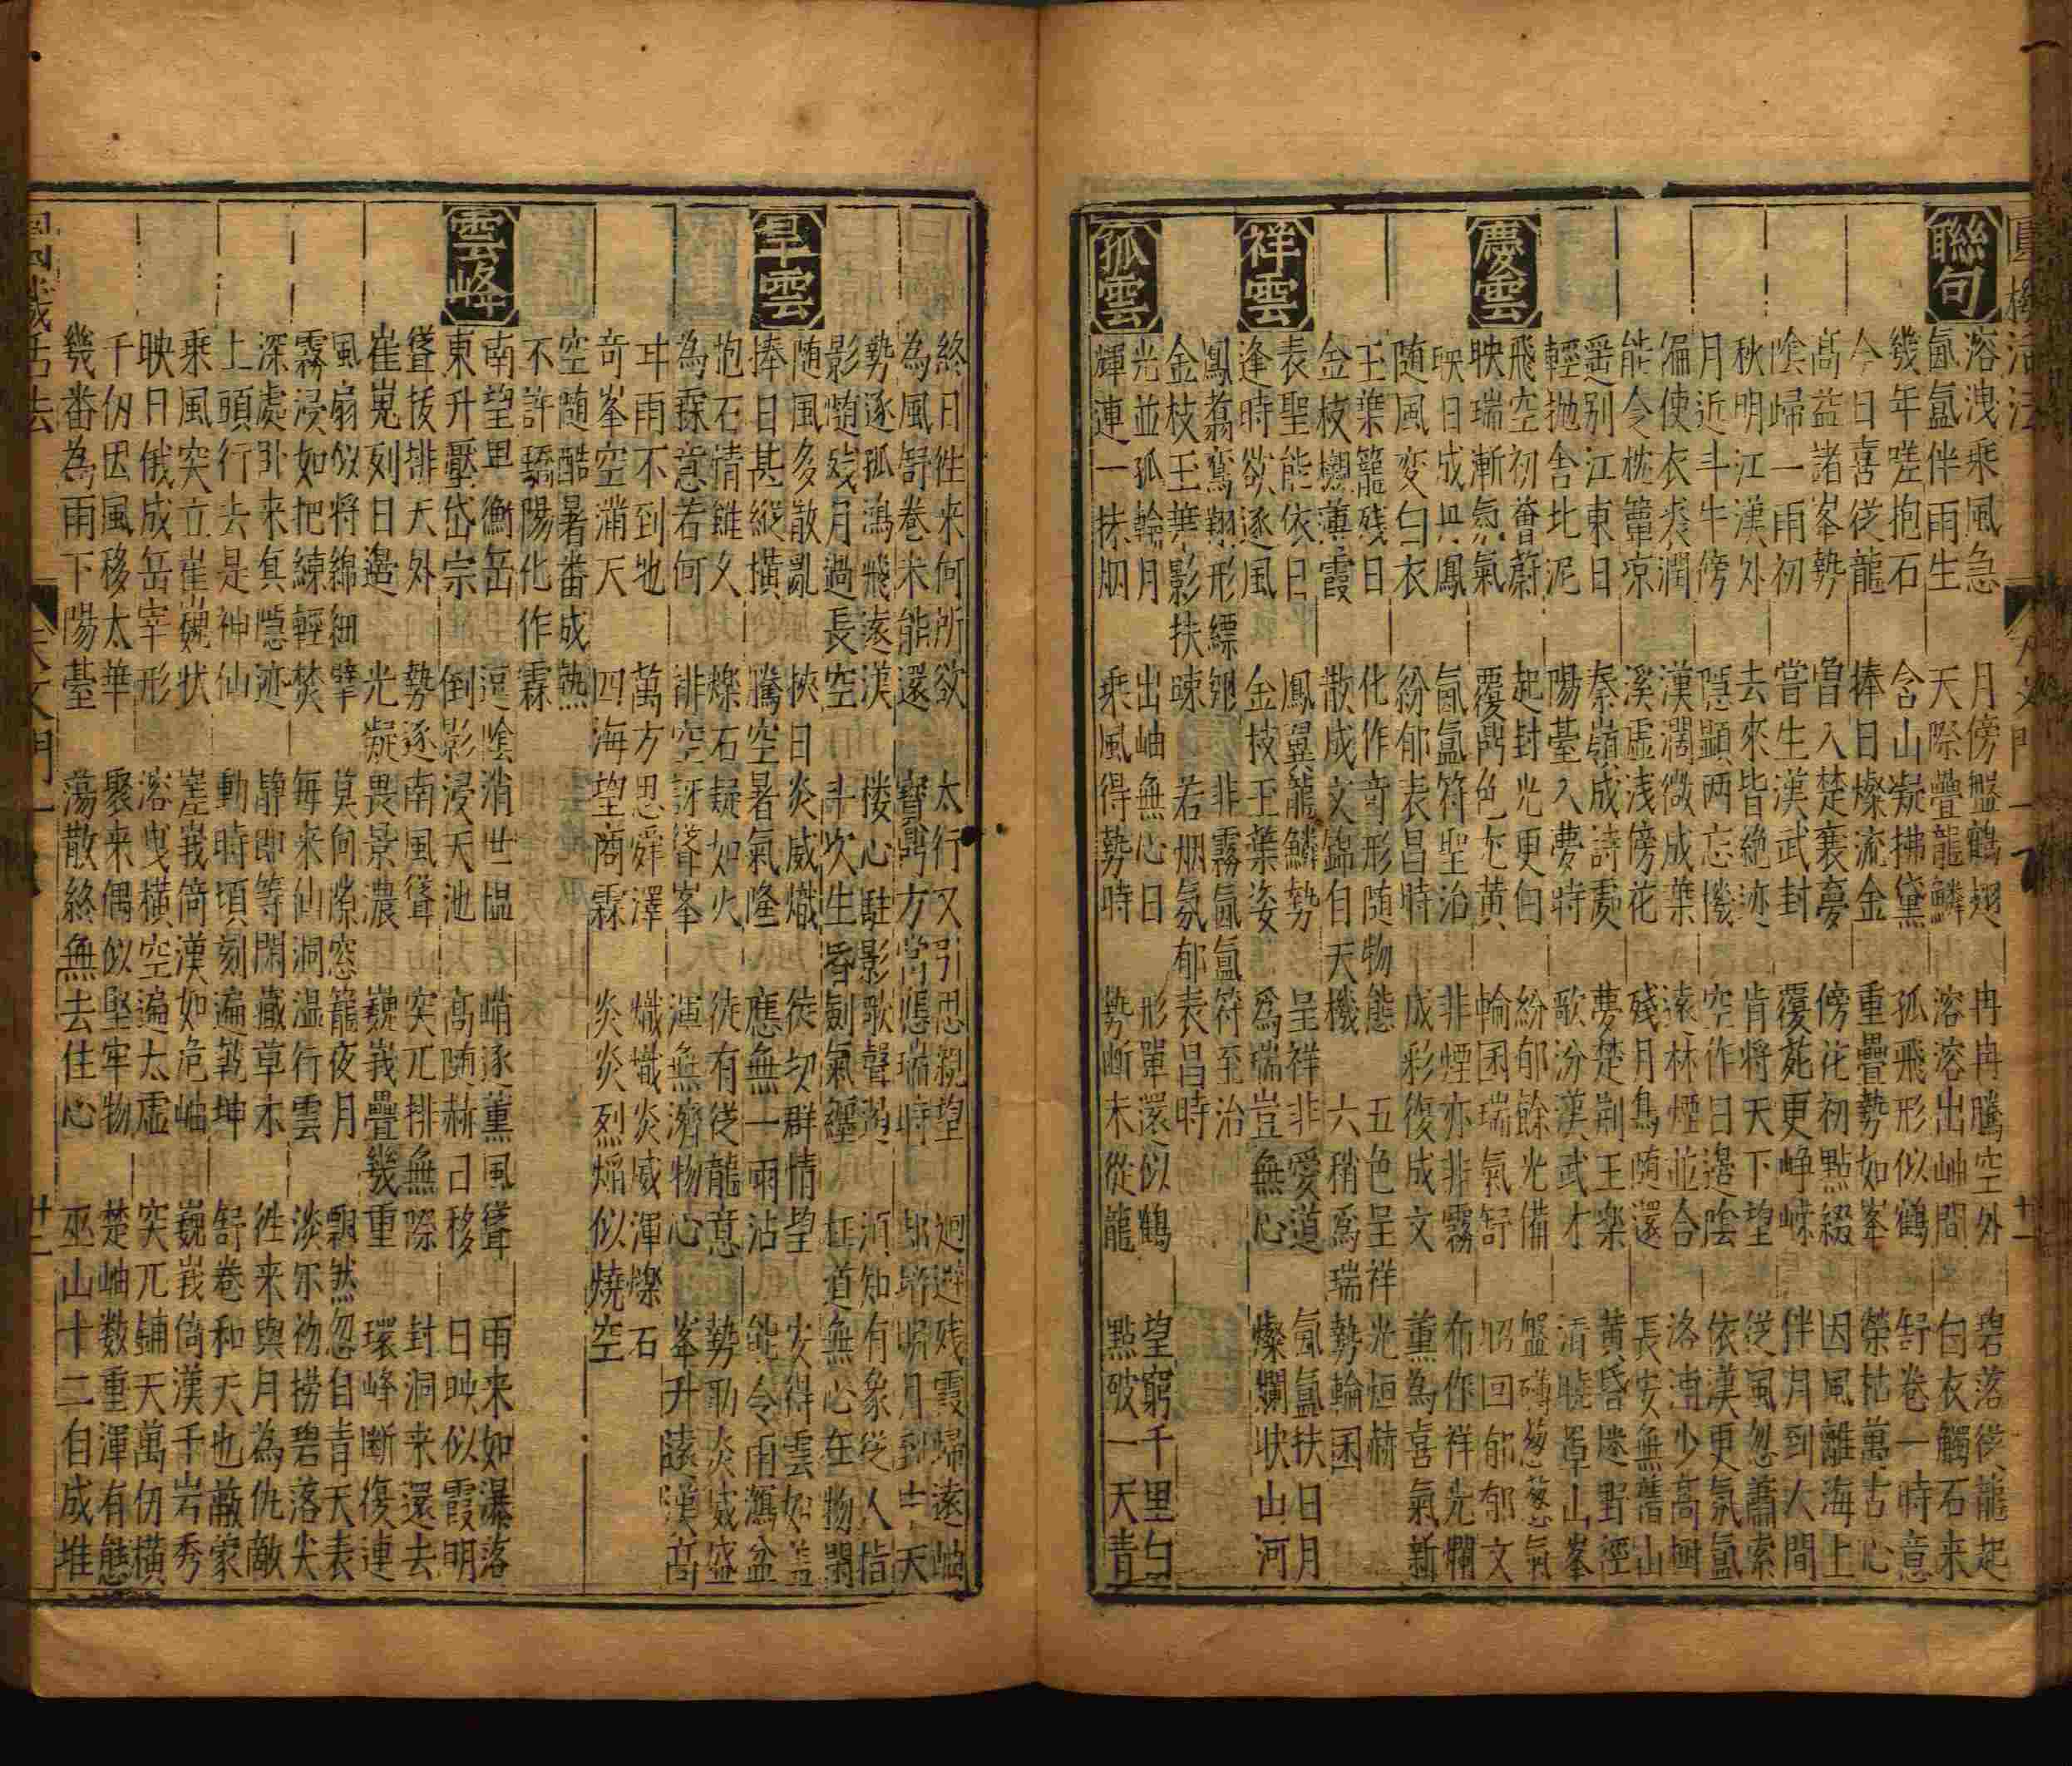 圓機活法 天文門一 十一
聯句
溶洩乘風急 月傍盤鶴翅 冉冉騰空外 碧落從龍起
氤氳伴雨生 天際疊龍鱗 溶溶出岫間 白衣觸石来
幾年嗟抱石 含山凝拂黛 孤飛形似鶴 舒卷一時意
今日喜從龍 捧日燦流金 重疊勢如峯 榮枯萬古心
高益諸峯勢 曾入楚襄夢 傍花初點綴 因風離海上
陰歸一雨初 嘗生漢武封 覆苑更崢嶸 伴月到人間
秋明江漢外 去來皆絶迹 肯将天下望 從風忽蕭索
月近斗牛傍 隱顯两忘機 空作日邊陰 依漢更氛氳
偏使衣裘潤 漢濶微成葉 遠林煙並合 洛浦少高樹
能令枕簟凉 溪虚浅傍花 残月鳥随還 長安無舊山
遥别江東日 秦嶺成詩處 夢楚荆王樂 黄昏迷野徑
輕抛舍北泥 陽臺入夢時 歌汾漢武才 清曉罩山峯
慶雲
飛空初薈蔚 起封光更白 紛郁餘光備 盤礴葱葱氣
映瑞漸氛氣 覆鼎色尤黄 輪囷瑞氣舒 昭回郁郁文
映日成丹鳳 氤氳符聖治 非煙亦非霧 布作祥光爛
随風変白衣 紛郁表昌時 成彩復成文 薫為喜氣新
玉葉籠残日 化作奇形随物態 五色呈祥光烜赫
金枝薄霞 散成文錦自天機 六稍爲瑞勢輪囷
祥雲
表聖能依日 鳳翼龍鱗勢 呈祥非愛道 氤氳扶日月
逢時欲逐風 金枝玉葉姿 爲瑞豈無心 燦爛映山河
鳳翥鸞翔形縹緲 非霧氤氳符至治
金枝玉華影扶疎 若烟氛郁表昌時
孤雲
光並孤輪月 出岫無心日 形單還似鶴 望窮千里白
輝連一抹烟 乘風得勢時 勢断未從龍 點破一天青
終日徃来何所欲 太行又引思親望 迴避残霞歸遠岫
為風舒卷未能還 寳鼎方當應瑞時 明月到天
勢逐孤鴻飛遠漢 楼心駐影歌聲遏 須知有象從人指
影随残月過長空 斗次生昏劍氣纏 枉道無心在物閑
旱雲
随風多散亂 挾日炎威熾 徒切群情望 安得雲如蓋
捧日甚縱横 騰空暑氣隆 應無一雨沾 能令雨瀉盆
抱石情雖久 爍石疑如火 徒有從龍意 勢助炎威盛
為霖意若何 排空訝聳峯 渾無濟物心 峯升遠漢高
丼雨不到地 萬方思舜澤 熾熾炎威渾爍石
奇峯空滿天 四海望商霖 炎炎烈焔似燒空
空随酷暑番成熱
不許驕陽化作霖
雲峰
南望卑衡岳 逗陰消世愠 峭逐薫風聳 雨来如瀑落
東升壓岱宗 倒影浸天池 高随赫日移 日映似霞明
聳拔排天外 勢逐南風聳 突兀排無際 封洞来還去
崔嵬刻日邉 光凝畏景濃 巍峩疊幾重 環峰断復連
風扇似将綿細擘 莫向隙窓籠夜月 飄然忽自青天表
霧浸如把練輕焚 毎来仙洞温行雲 淡尔初捞碧落尖
深處卧来真隱迹 静即等閑藏草木 徃来與月為仇敵
上頭行去是神仙 動時頃刻遍乾坤 舒卷和天也蔽蒙
乘風突立崔巍状 嵳峩倚漢如危岫 巍峩倚漢千岩秀
映日俄成岳宰形 溶曵横空遍太虚 突兀鋪天萬仞横
千仞因風移太華 聚来偶似堅牢物 楚岫数重渾有態
幾番為雨下陽臺 蕩散終無去住心 巫山十二自成堆